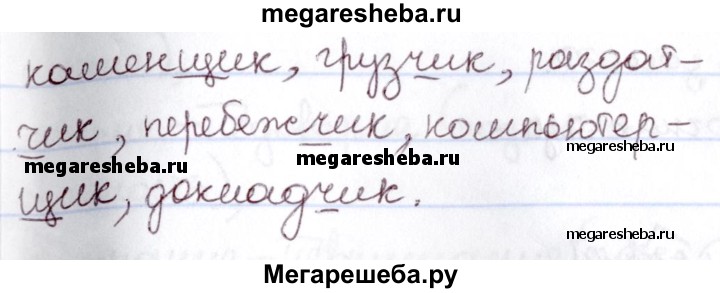 megaresheba.ru
каменщик, грузчик, раздат-
чик, перебежчик, компьютер-
megaresheba.ru
megaresheba.ru
megaresheba.ru
щик, докладчик.
megaresheba.ru
Мегарешеба.ру